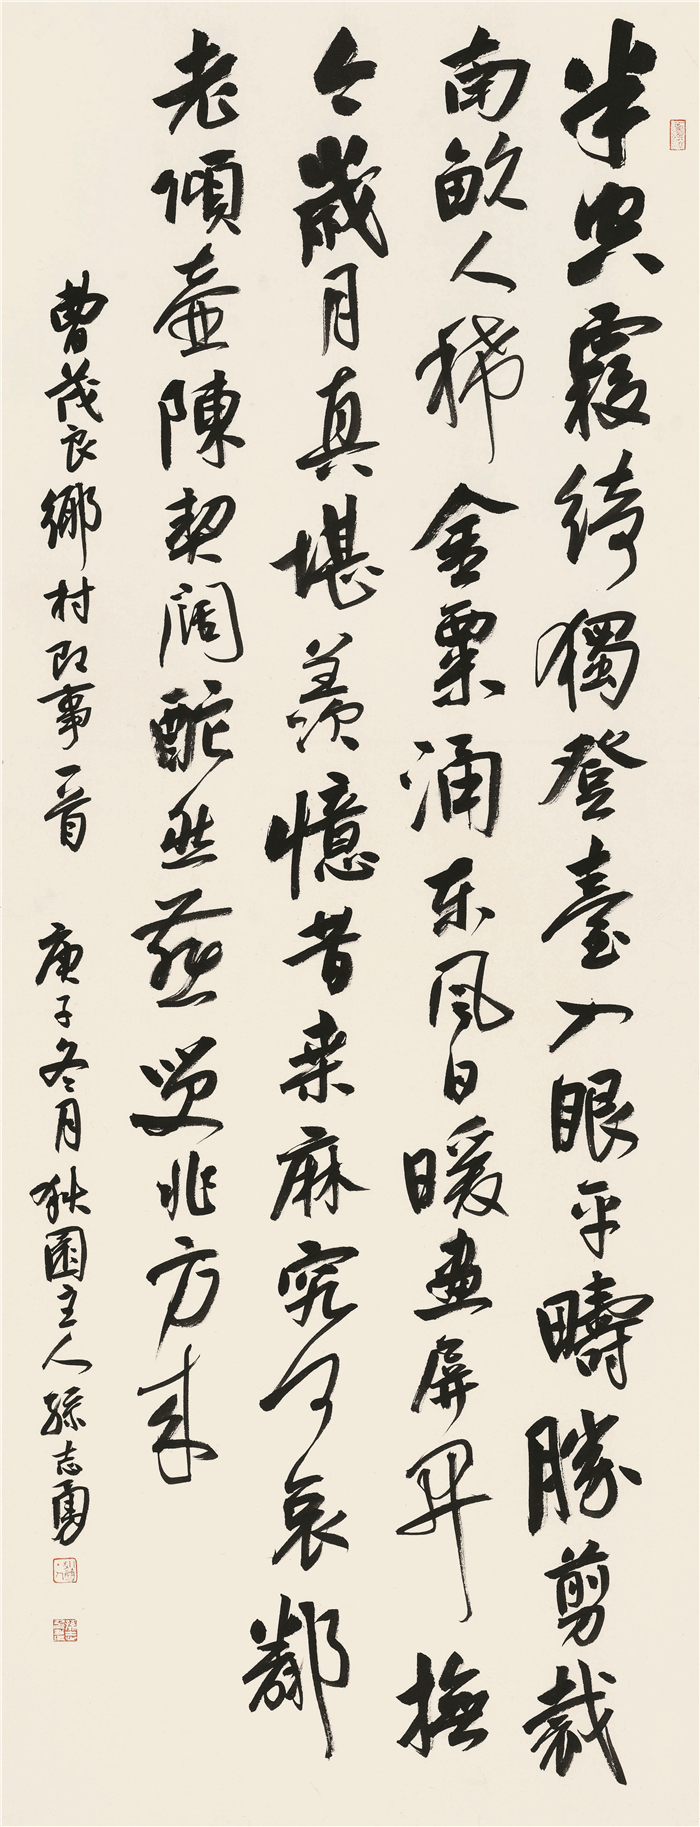 半空霞綺獨登臺入眼平疇勝剪裁
南畝人稀金粟涌东風日暖畫屏開撫
今歲月真堪羨憶昔桑麻究可哀鄰
老傾壺陳契闊酡然兆方來
曹茂良鄉村即事一首 庚子冬月狄園主人孫志勇